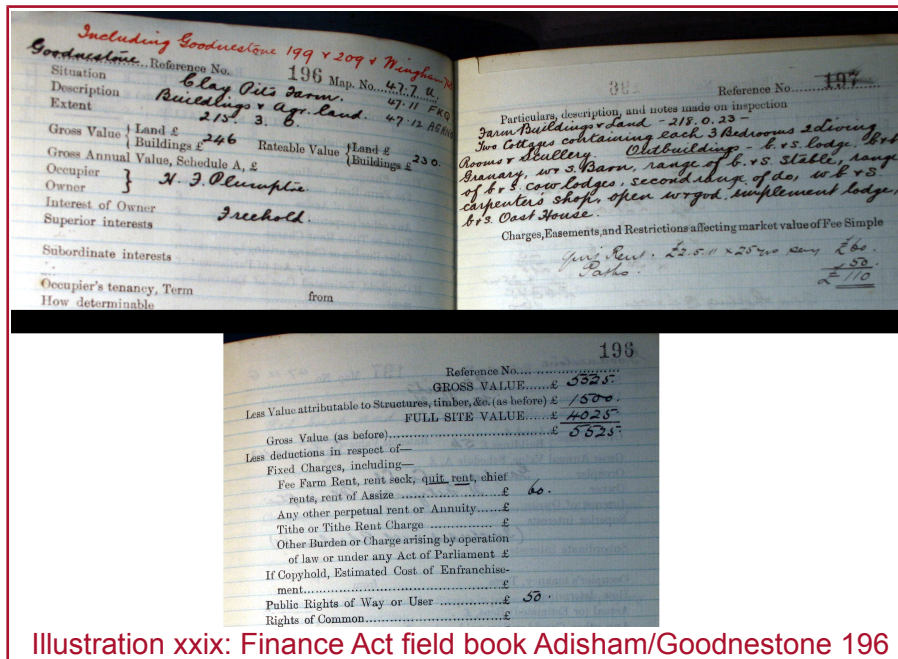 Including Goodnestone 199 & 209 & Wingham
Goodnestone Reference No. 196 Map. No. 47.7 U
Situation Clay Pits Farm. 47.11 FKQ
Description Buildings & Agr. land. 47.12
Extent 215. 3. 6.
Gross Value { Land £
Buildings £ 246 Rateable Value { Land £
Buildings £ 230.
Gross Annual Value, Schedule A, £
Occupier
Owner } H. J. Plumptre.
Interest of Owner Freehold.
Superior interests
Subordinate interests
Occupier's tenancy, Term from
How determinable
Reference No.
Particulars, description, and notes made on inspection
Farm Buildings & Land - 218.0.23 -
Two Cottages containing each 3 Bedrooms 2 Living
Rooms & Scullery. Outbuildings - b. & s. lodge,
Granary, w & s. Barn, range of b. & s. Stable, range
of b & s. cow lodges, second range of do, w b & s
carpenter's shop, open w & god. implement lodge,
b & s. Oast House.
Charges, Easements, and Restrictions affecting market value of Fee Simple
Quit Rent. £2.5.11 x 25 yrs £60.
Paths. 50.
£110
196
Reference No.
GROSS VALUE £ 5525.
Less Value attributable to Structures, timber, &c. (as before) £ 1500.
FULL SITE VALUE £ 4025
Gross Value (as before) £ 5525.
Less deductions in respect of—
Fixed Charges, including—
Fee Farm Rent, rent seck, quit rent, chief
rents, rent of Assize £ 60.
Any other perpetual rent or Annuity £
Tithe or Tithe Rent Charge £
Other Burden or Charge arising by operation
of law or under any Act of Parliament £
If Copyhold, Estimated Cost of Enfranchise-
ment £
Public Rights of Way or User £ 50.
Rights of Common £
Illustration xxix: Finance Act field book Adisham/Goodnestone 196